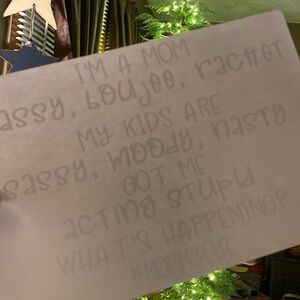 I'M A MOM
assy, boujee, rachet
MY KIDS ARE
sassy, moody, nasty
GOT ME
acting stupid
WHAT'S HAPPENING?